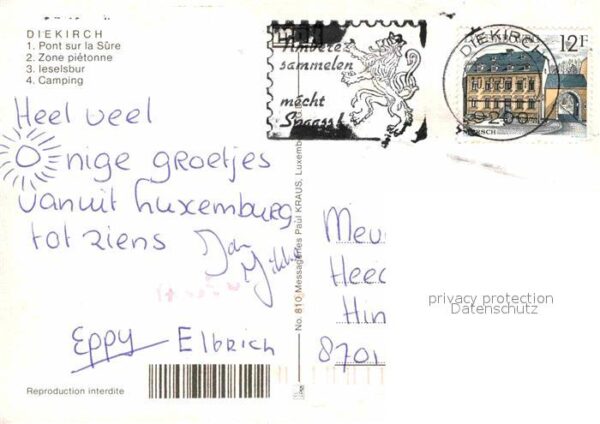 DIEKIRCH
1. Pont sur la Sûre
2. Zone piétonne
3. Ieselsbur
4. Camping
Timbere
sammelen
mécht
Spaass!
DIEKIRCH
9200
12F
Heel veel
O-nige groetjes
vanuit Luxemburg
tot ziens
Jan
Eppy Elbrich
Reproduction interdite
No. 810 Messageries Paul KRAUS, Luxembourg
Meu
Heec
Hin
8701
privacy protection
Datenschutz